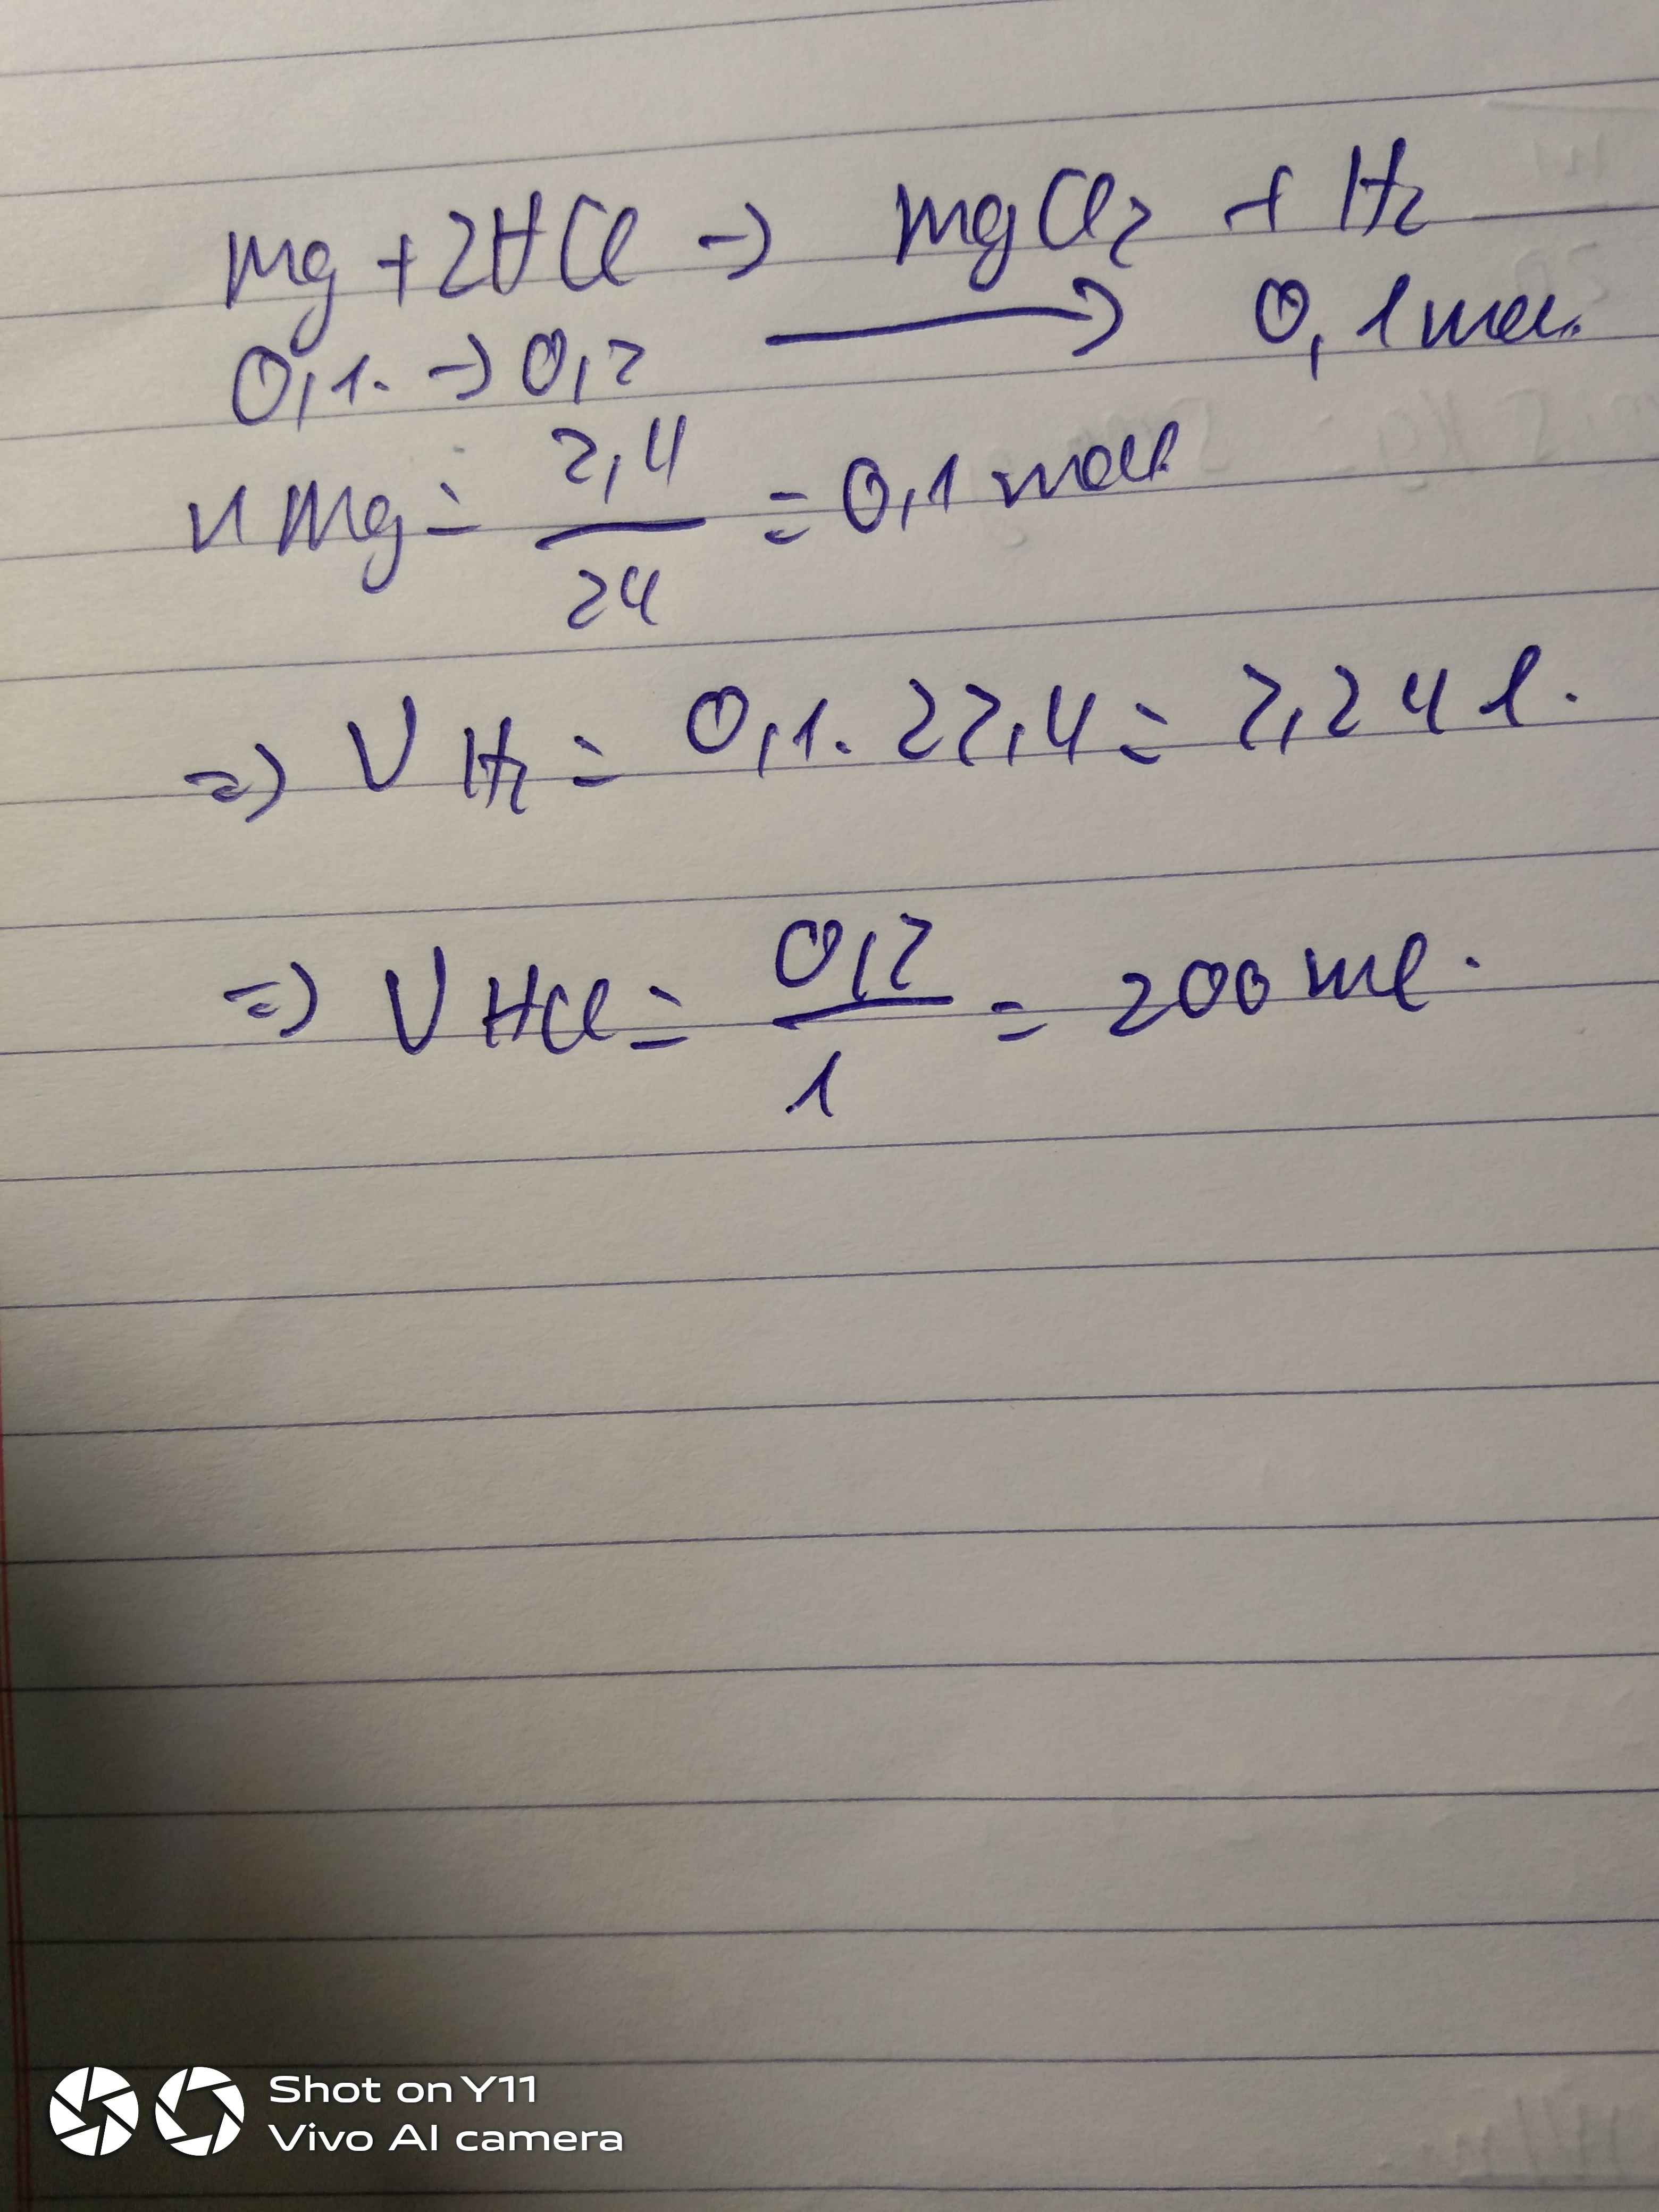 Mg + 2HCl → MgCl₂ + H₂
0,1. → 0,2 ⟶ 0,1 mol.
n Mg = 2,4 / 24 = 0,1 mol
=> V H₂ = 0,1. 22,4 = 2,24 l.
=> V HCl = 0,2 / 1 = 200 ml.
Shot on Y11
Vivo AI camera